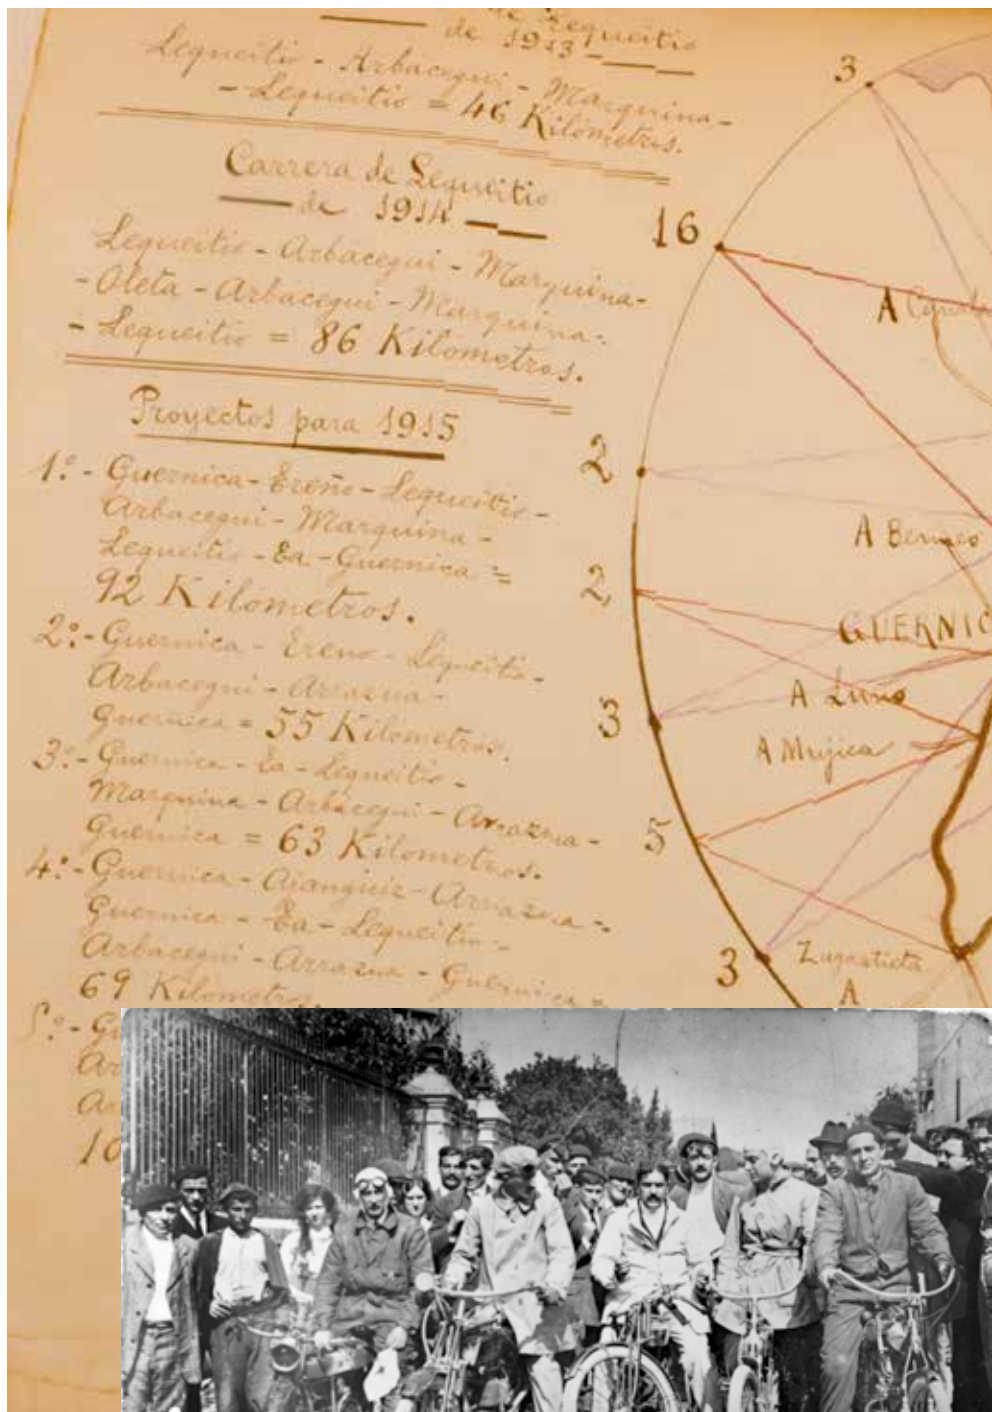 de Lequeitio
de 1913
Lequeitio - Arbacegui - Marquina -
- Lequeitio = 46 Kilómetros.
Carrera de Lequeitio
de 1914
Lequeitio - Arbacegui - Marquina -
- Oleta - Arbacegui - Marquina -
- Lequeitio = 86 Kilómetros.
Proyectos para 1915
1.º - Guernica - Ereño - Lequeitio -
Arbacegui - Marquina -
Lequeitio - Ea - Guernica =
92 Kilometros.
2.º - Guernica - Ereno - Lequeitio -
Arbacegui - Arrazua -
Guernica = 55 Kilómetros.
3.º - Guernica - Ea - Lequeitio -
Marquina - Arbacegui - Arrazua -
Guernica = 63 Kilometros.
4.º - Guernica - Ajanguiz - Arrazua -
Guernica - Ea - Lequeitio -
Arbacegui - Arrazua - Guernica =
69 Kilometros.
5.º - G
Ar
Ar
10
3
16
A
2
A Bermeo
2
GUERNIC
A Luno
3
A Mujica
5
Zugastieta
3
A